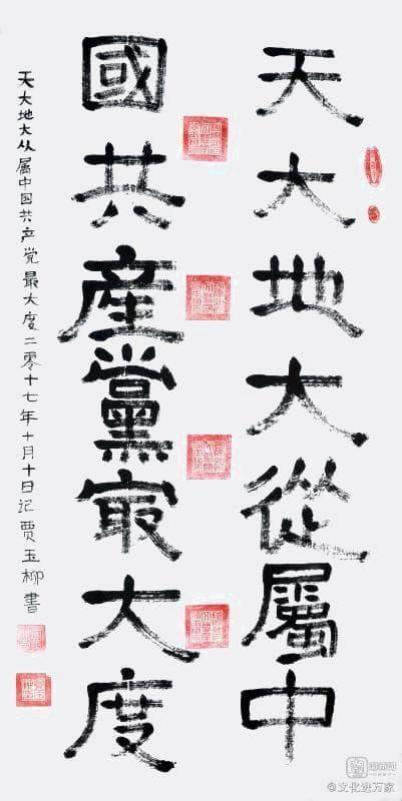 天大地大從屬中
國共產黨最大度
天大地大从属中国共产党最大度二零十七年十月十日记贾玉柳書
@文化进万家